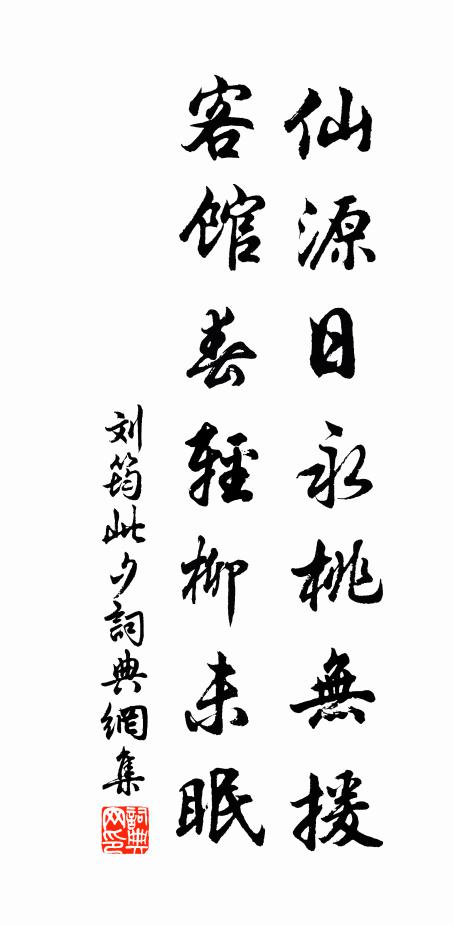 仙源日永桃無援
客館春輕柳未眠
刘筠此夕詞典網集
詞典网印